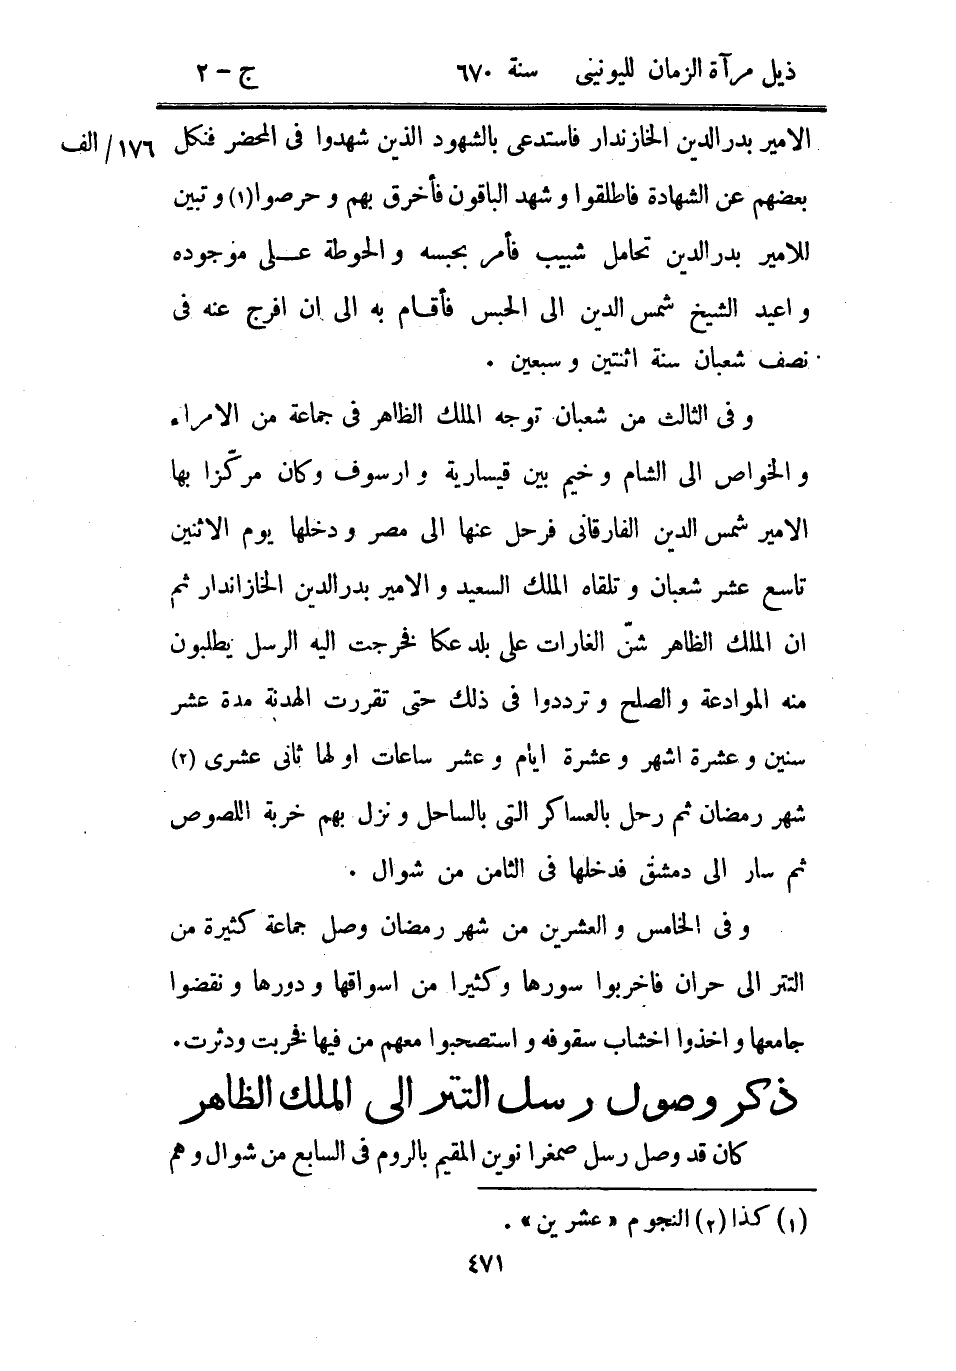 ذيل مرآة الزمان لليونينى سنة ٦٧٠ ج - ٢
الامير بدرالدين الخازندار فاستدعى بالشهود الذين شهدوا فى المحضر فنكل ١٧٦/ الف
بعضهم عن الشهادة فاطلقوا و شهد الباقون فأخرق بهم و حرصوا(١) و تبين
للامير بدرالدين تحامل شبيب فأمر بحبسه و الحوطة عـلى موجوده
و اعيد الشيخ شمس الدين الى الحبس فأقـام به الى ان افرج عنه فى
نصف شعبان سنة اثنتين و سبعين .
و فى الثالث من شعبان توجه الملك الظاهر فى جماعة من الامراء
و الخواص الى الشام و خيم بين قيسارية و ارسوف وكان مركّزا بها
الامير شمس الدين الفارقانى فرحل عنها الى مصر و دخلها يوم الاثنين
تاسع عشر شعبان و تلقاه الملك السعيد و الامير بدرالدين الخازاندار ثم
ان الملك الظاهر شنّ الغارات على بلد عكا فخرجت اليه الرسل يطلبون
منه الموادعة و الصلح و ترددوا فى ذلك حتى تقررت الهدنة مدة عشر
سنين و عشرة اشهر و عشرة ايام و عشر ساعات اولها ثانى عشرى (٢)
شهر رمضان ثم رحل بالعساكر التى بالساحل و نزل بهم خربة اللصوص
ثم سار الى دمشق فدخلها فى الثامن من شوال .
و فى الخامس و العشرين من شهر رمضان وصل جماعة كثيرة من
التتر الى حران فاخربوا سورها وكثيرا من اسواقها و دورها و نقضوا
جامعها و اخذوا اخشاب سقوفه و استصحبوا معهم من فيها فخربت ودثرت.
ذكر وصول رسل التتر الى الملك الظاهر
كان قد وصل رسل صمغرا نوين المقيم بالروم فى السابع من شوال و هم
(١) كذا (٢) النجوم « عشرين» .
٤٧١